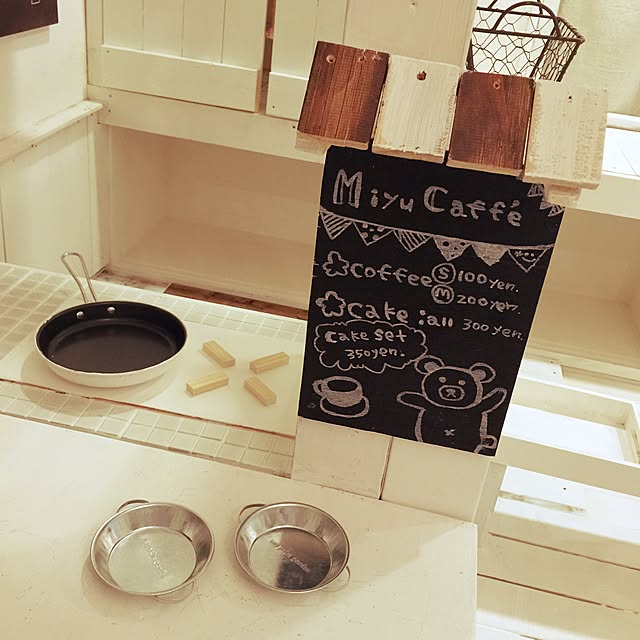 Miyu Caffé
Coffee Ⓢ 100 yen.
Ⓜ 200 yen.
Cake : all 300 yen.
Cake Set
350 yen.